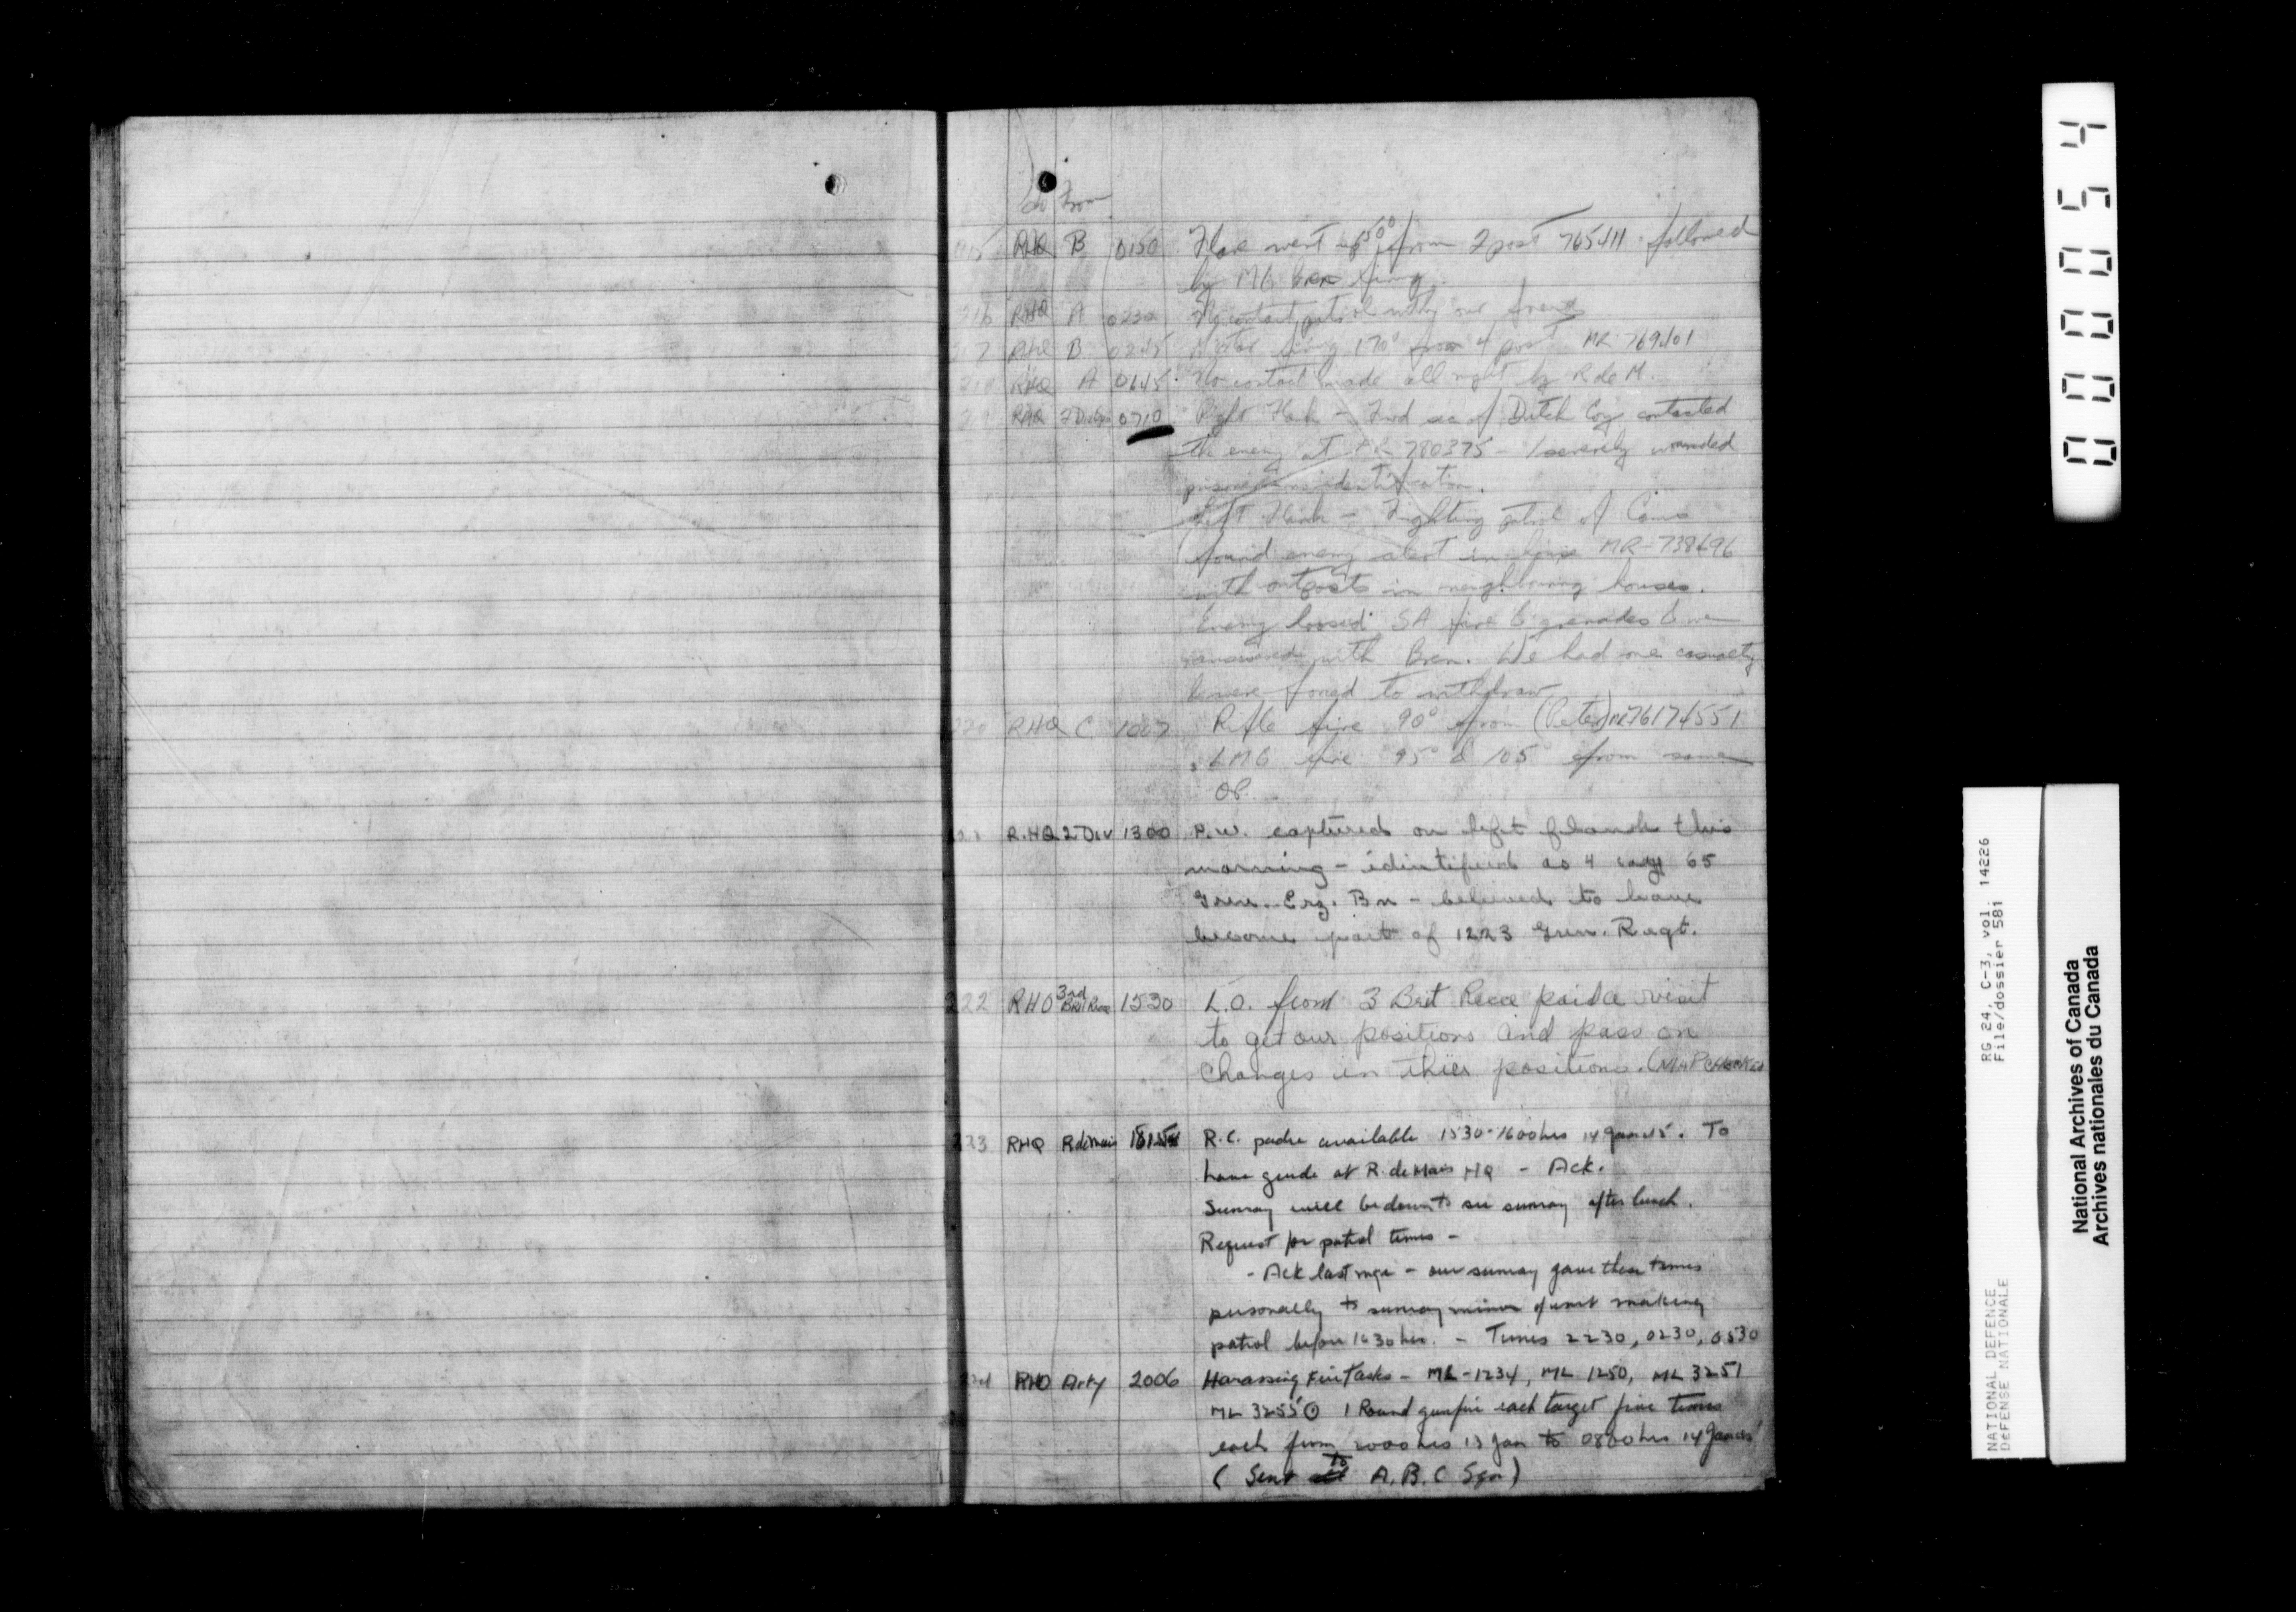 To From
215 RHQ B 0130 Flare went up 50° from 2 post 765411 followed
by MG Bren firing.
216 RHQ A 0230 No contact patrol with our friends
217 RHQ B 0245 Mortar firing 170° from 4 post MR 769401
218 RHQ A 0645 No contact made all night by R de M.
219 RHQ 0710 Right Flank - Fwd sec of Dutch Coy contacted
the enemy at 780375 - 1 severely wounded
prisoner identification.
Left Flank - Fighting patrol of Cams
found enemy alert in house MR-738496
with outposts in neighbouring houses.
Enemy loosed SA fire & grenades & we
answered with Bren. We had one casualty
& were forced to withdraw
220 RHQ C 1007 Rifle fire 90° from (Peter) MR 76174551
LMG fire 95° & 105° from same
OP.
221 R.HQ 2 Div 1300 P.W. captured on left flank this
morning - identified as 4 coy 65
Gren. Erz. Bn - believed to have
become part of 1223 Gren. Regt.
222 RHQ 3rd Brit Recce 1530 L.O. from 3 Brit Recce paid a visit
to get our positions and pass on
changes in thier positions. (MAP CHECKED
223 RHQ R de Mais 1815 R.C. padre available 1530-1600hrs 14 Jan 45. To
have guide at R. de Mais HQ - Ack.
Sunray will be down to see sunray after lunch.
Request for patrol times -
- Ack last mge - our sunray gave these times
personally to sunray minor of unit making
patrol before 1630 hrs. - Times 2230, 0230, 0530
224 RHQ Arty 2006 Harassing Fire Tasks - ML-1234, ML 1250, ML 3251
ML 3255 1 Round gunfire each target five times
each from 2000hrs 13 Jan to 0800hrs 14 Jan 45
(Sent to A.B.C Sqn)
0000054
RG 24, C-3, vol. 14226
File/dossier 581
NATIONAL DEFENCE
DÉFENSE NATIONALE
National Archives of Canada
Archives nationales du Canada